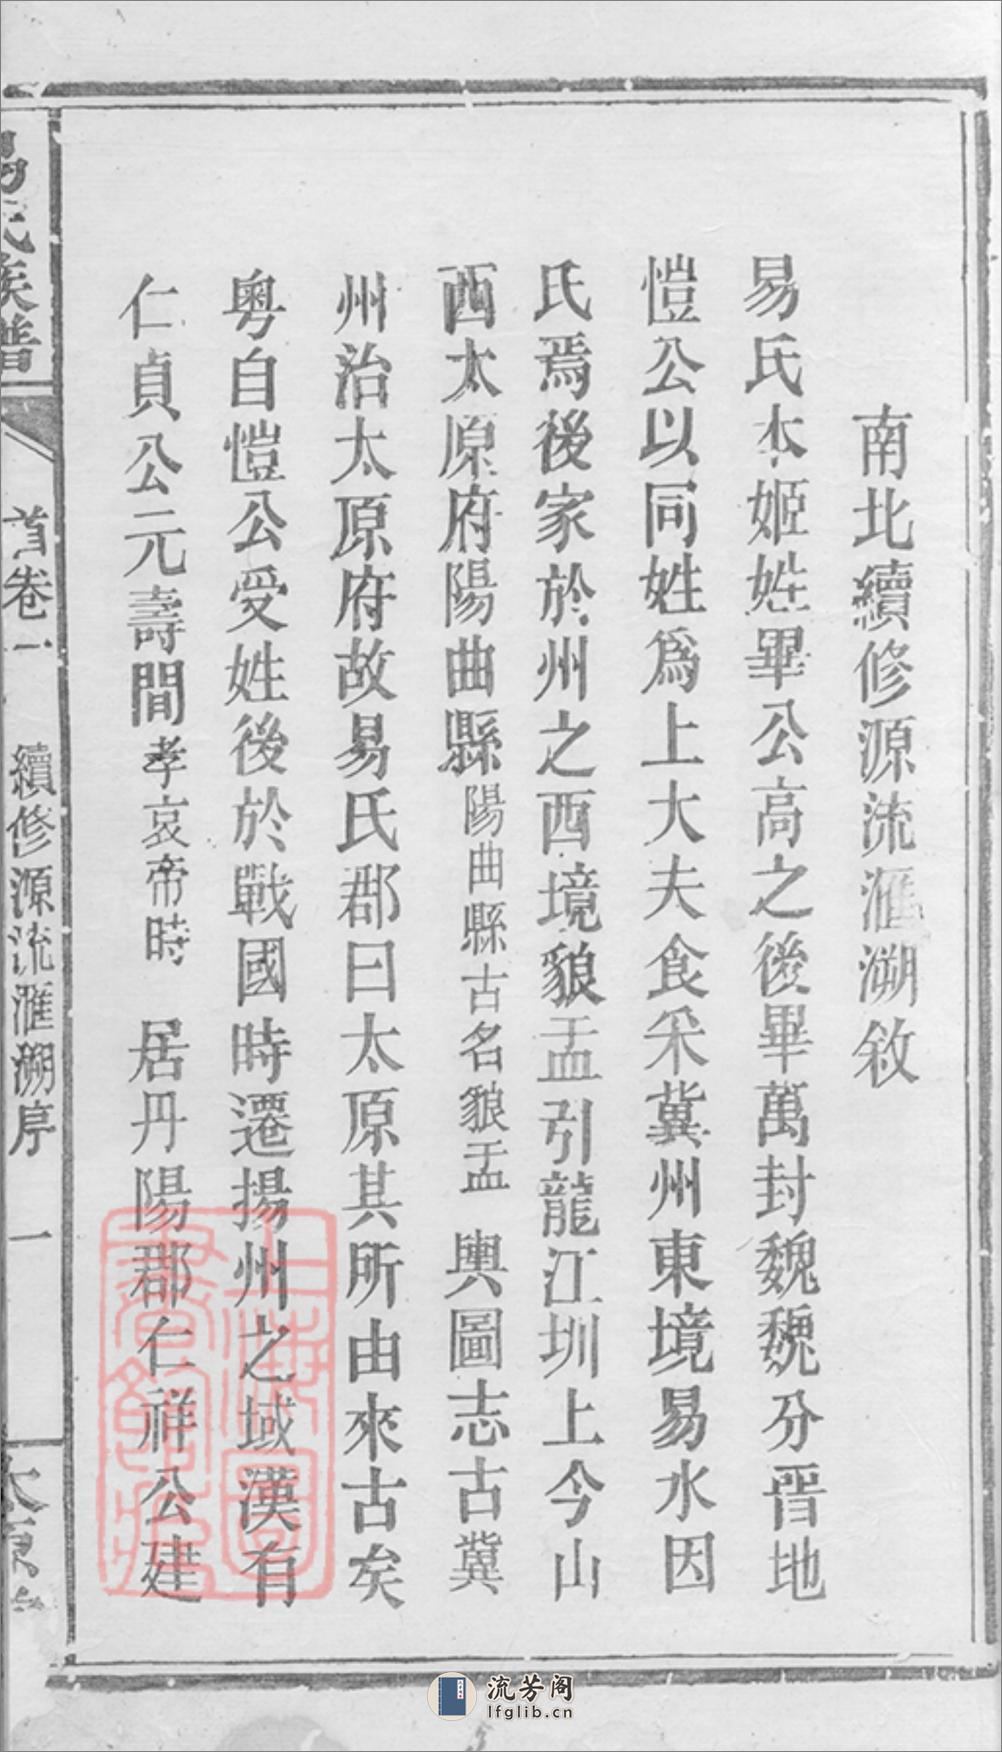 南北續修源流滙溯敘
易氏本姬姓畢公高之後畢萬封魏魏分晉地
愷公以同姓為上大夫食采冀州東境易水因
氏焉後家於州之西境狼盂引龍江圳上今山
西太原府陽曲縣陽曲縣古名狼盂輿圖志古冀
州治太原府故易氏郡曰太原其所由來古矣
粵自愷公受姓後於戰國時遷揚州之域漢有
仁貞公元壽間孝哀帝時居丹陽郡仁祥公建
易氏族譜
首卷一
續修源流滙溯序
一
太原堂
上海圖書館藏
流芳阁
lfglib.cn